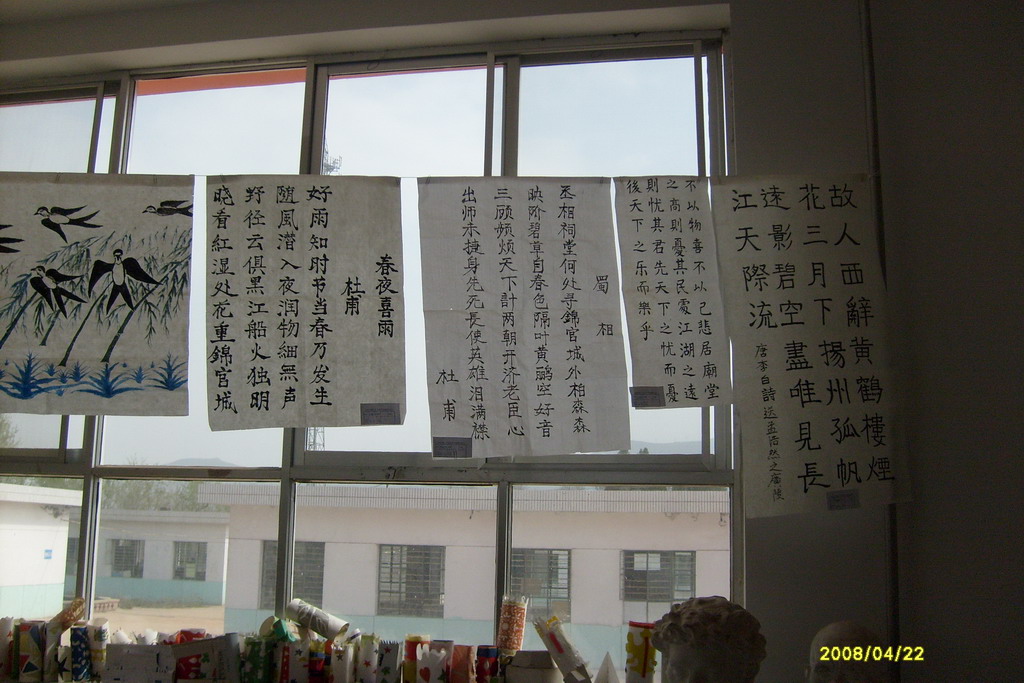 春夜喜雨
杜甫
好雨知时节当春乃发生
随風潜入夜润物細無声
野径云俱黑江船火独明
晓看紅湿处花重錦官城
蜀相
丞相祠堂何处寻錦官城外柏森森
映阶碧草自春色隔叶黄鹂空好音
三顾频烦天下計两朝开济老臣心
出师未捷身先死長使英雄泪满襟
杜甫
不以物喜不以己悲居廟堂
之高則憂其民處江湖之遠
則忧其君先天下之忧而憂
後天下之乐而樂乎
故人西辭黄鶴樓煙
花三月下揚州孤帆
遠影碧空盡唯見長
江天際流
唐李白詩送孟浩然之廣陵
2008/04/22